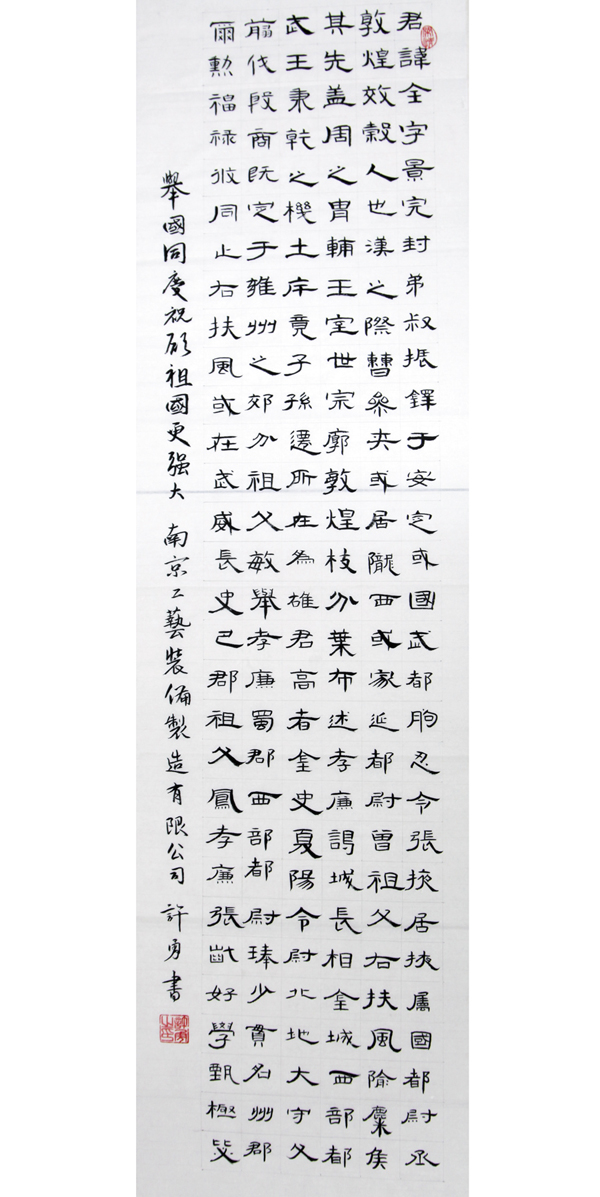 君諱全字景完封弟叔振鐸于安定或國武都朐忍令張掖居掖屬國都尉丞
敦煌效穀人也漢之際曹參夾或居隴西或家延都尉曾祖父右扶風隃麋侯
其先盖周之胄輔王室世宗廓敦煌枝分葉布述孝廉謁城長相金城西部都
武王秉乾之機土斥竟子孫遷所在為雄君高者金史夏陽令尉北地大守父
翦伐殷商既定于雍州之郊分祖父敏舉孝廉蜀郡西部都尉琫少貫名州郡
爾勲福禄攸同止右扶風或在武威長史巴郡祖父鳳孝廉張齔好學甄極毖
舉國同慶祝願祖國更强大 南京工藝裝備製造有限公司 許勇書